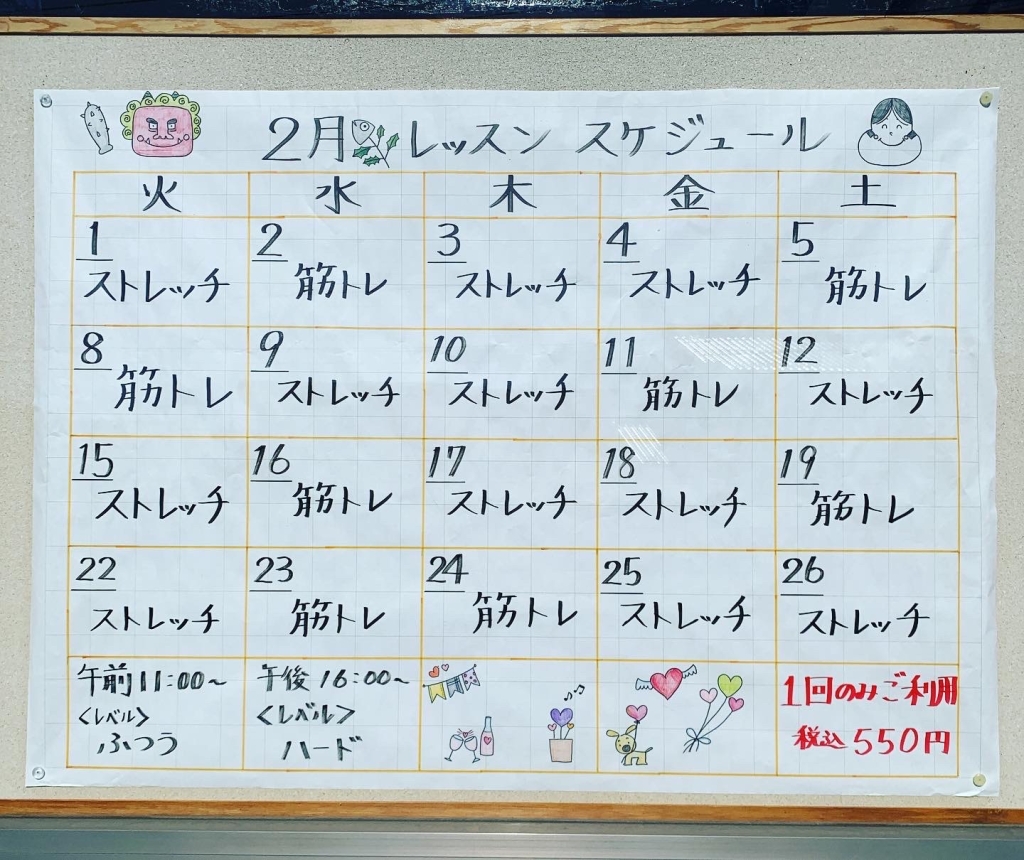 2月 レッスン スケジュール
火 水 木 金 土
1 2 3 4 5
ストレッチ 筋トレ ストレッチ ストレッチ 筋トレ
8 9 10 11 12
筋トレ ストレッチ ストレッチ 筋トレ ストレッチ
15 16 17 18 19
ストレッチ 筋トレ ストレッチ ストレッチ 筋トレ
22 23 24 25 26
ストレッチ 筋トレ 筋トレ ストレッチ ストレッチ
午前11:00~
<レベル>
ふつう
午後16:00~
<レベル>
ハード
1回のみご利用
税込550円